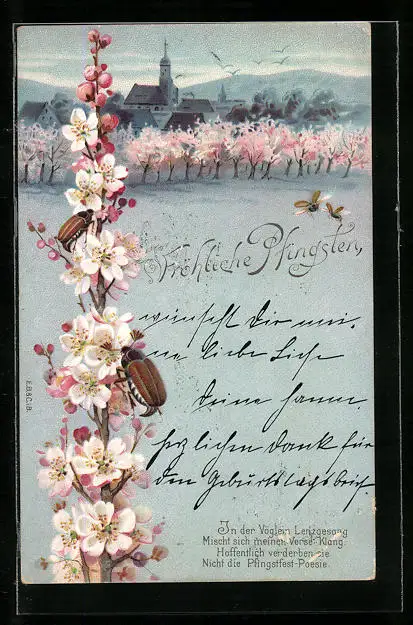 Fröhliche Pfingsten,
wünscht Dir mei-
ne liebe
Deine
herzlichen Dank für
den Geburtstagsbrief.
E.B.& C.i.B.
In der Vöglein Lenzgesang
Mischt sich meiner Verse Klang.
Hoffentlich verderben sie
Nicht die Pfingstfest-Poesie.